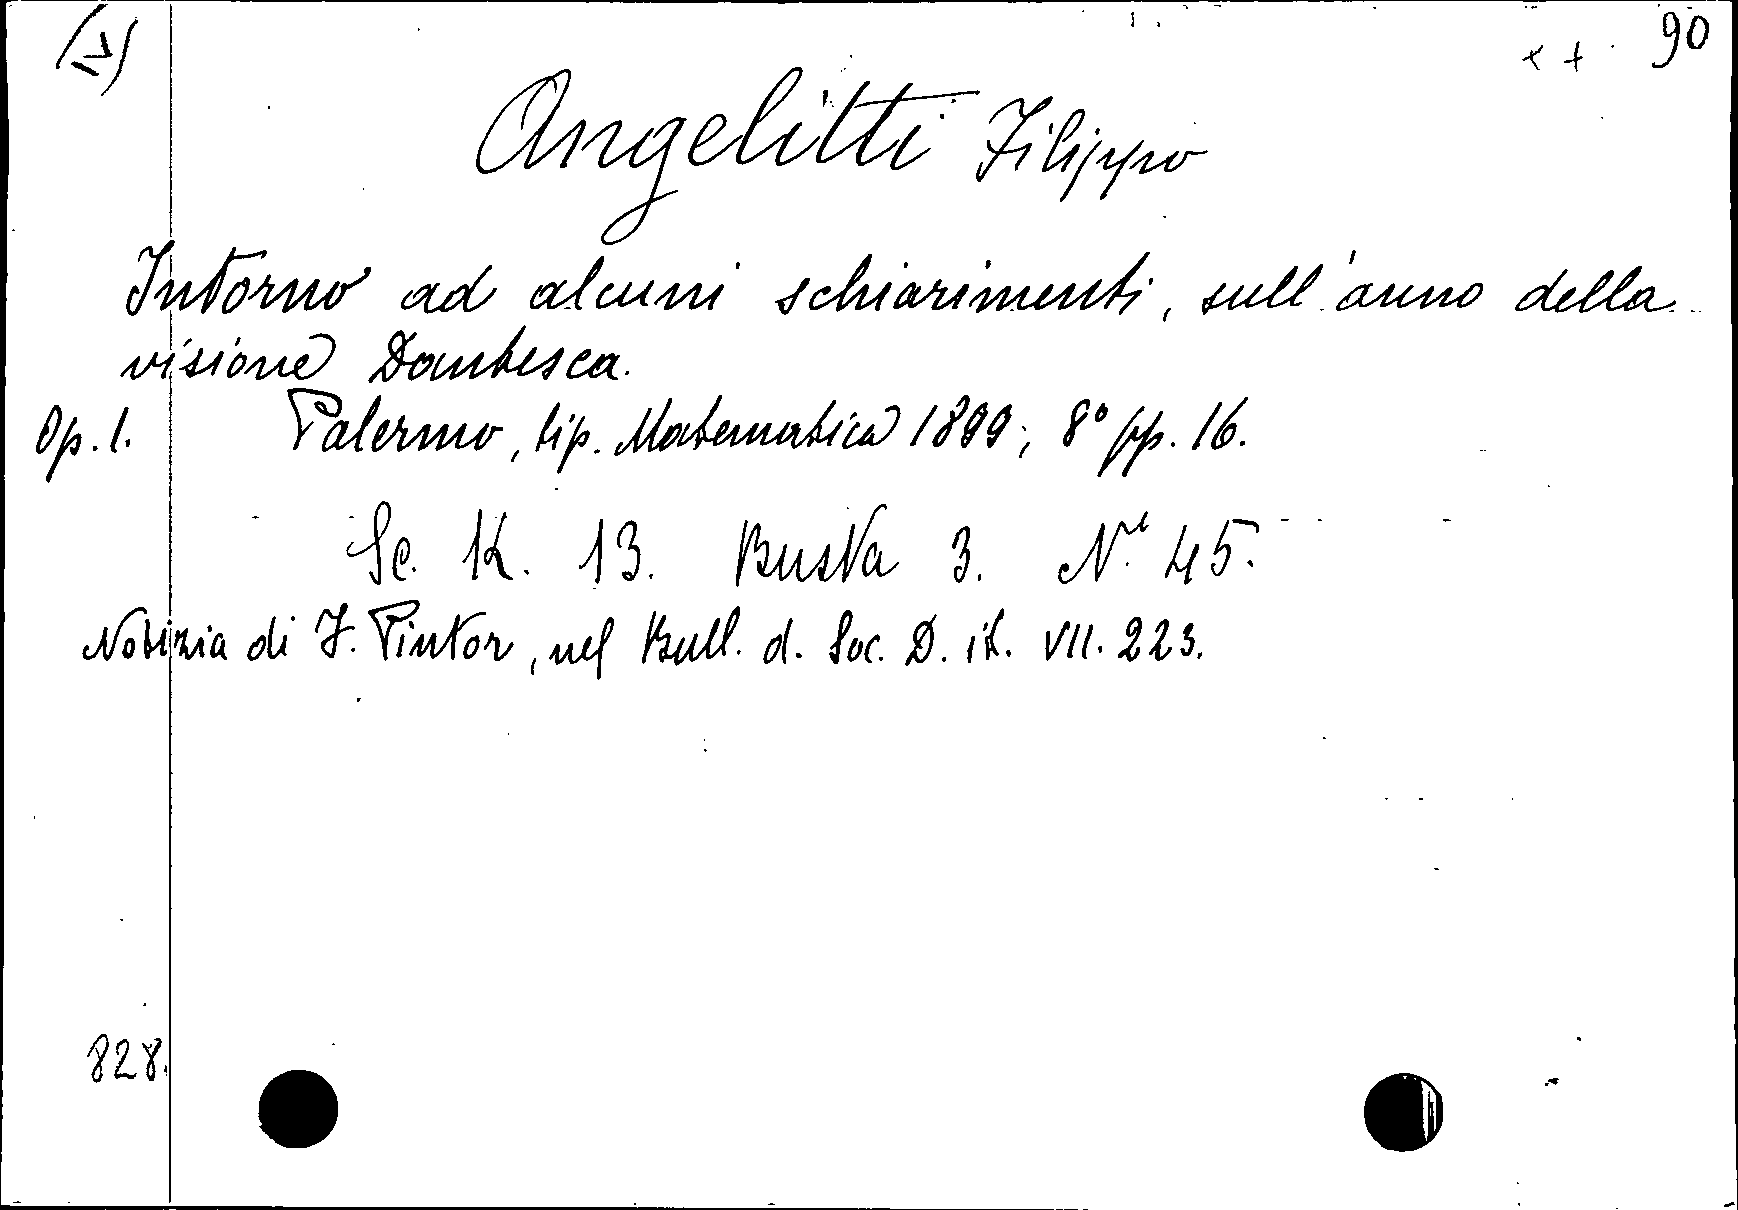 90
Angelitti Filippo
Intorno ad alcuni schiarimenti, sull'anno della
visione Dantesca.
Op. l. Palermo, tip. Matematica 1899; 8° pp. 16.
Sc. K. 13. Busta 3. N. 45.
Notizia di F. Pintor, nel Bull. d. Soc. D. it. VII. 223.
828.